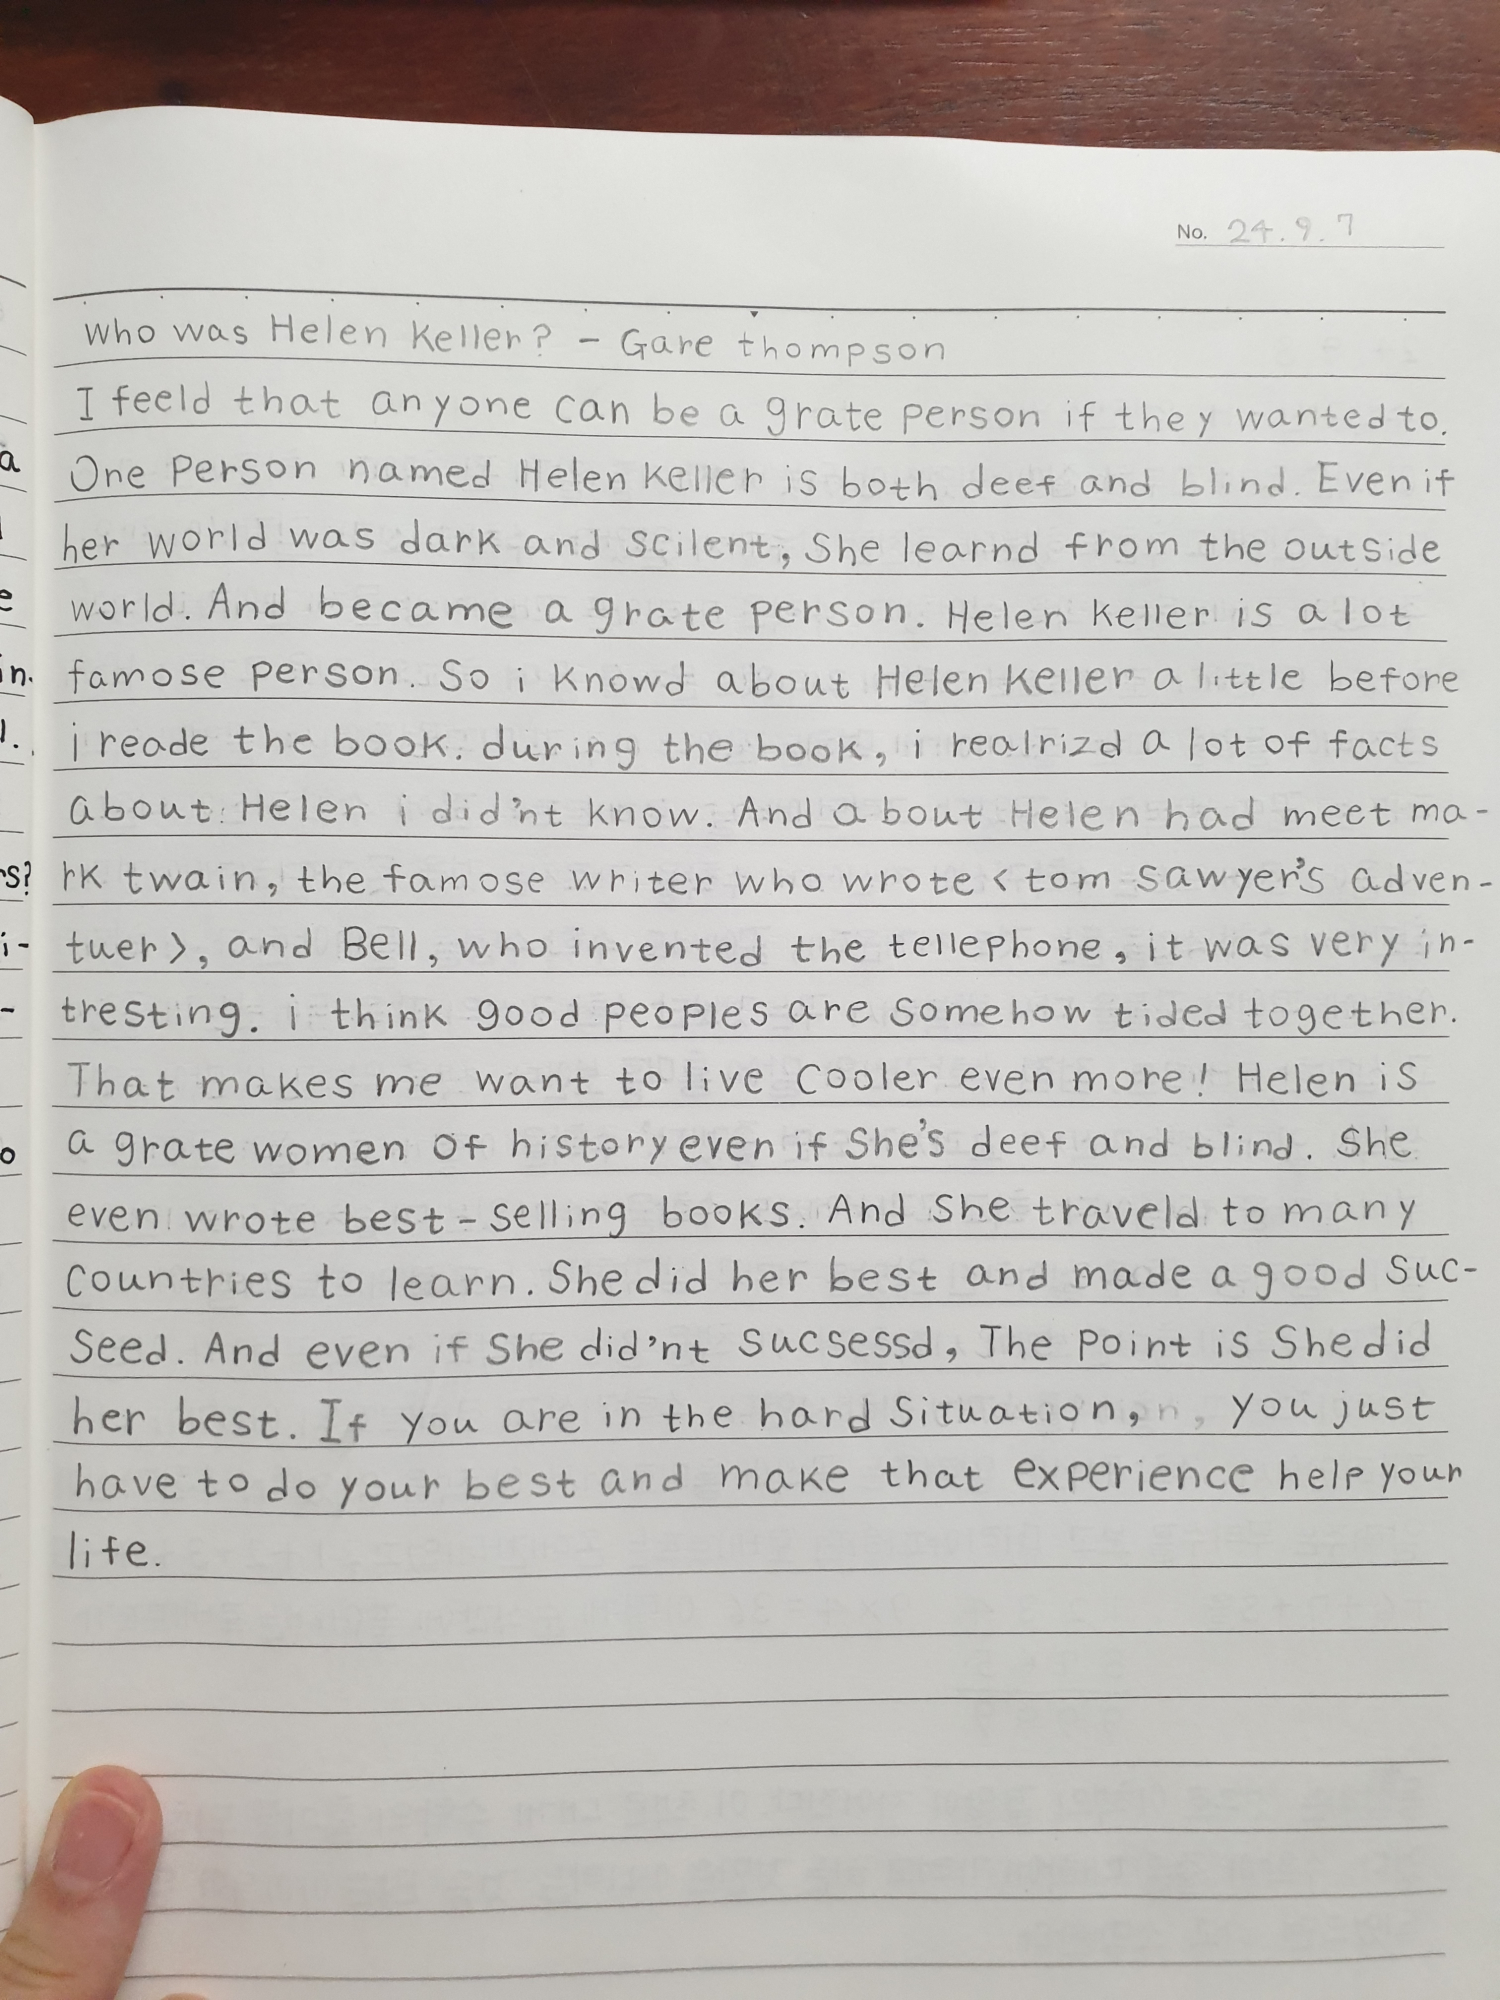 No. 24.9.7
who was Helen Keller? - Gare thompson
I feeld that anyone can be a grate person if they wanted to.
One person named Helen Keller is both deef and blind. Even if
her world was dark and scilent, She learnd from the outside
world. And became a grate person. Helen Keller is a lot
famose person. So i knowd about Helen Keller a little before
i reade the book. during the book, i realrizd a lot of facts
about Helen i did'nt know. And about Helen had meet ma-
rk twain, the famose writer who wrote <tom sawyer's adven-
tuer>, and Bell, who invented the tellephone, it was very in-
tresting. i think good peoples are somehow tided together.
That makes me want to live cooler even more! Helen is
a grate women of history even if She's deef and blind. She
even wrote best-selling books. And She traveld to many
countries to learn. She did her best and made a good suc-
seed. And even if She did'nt sucsessd, The point is She did
her best. If you are in the hard situation, you just
have to do your best and make that experience help your
life.
a
e
in.
l.
rs?
i-
-
o